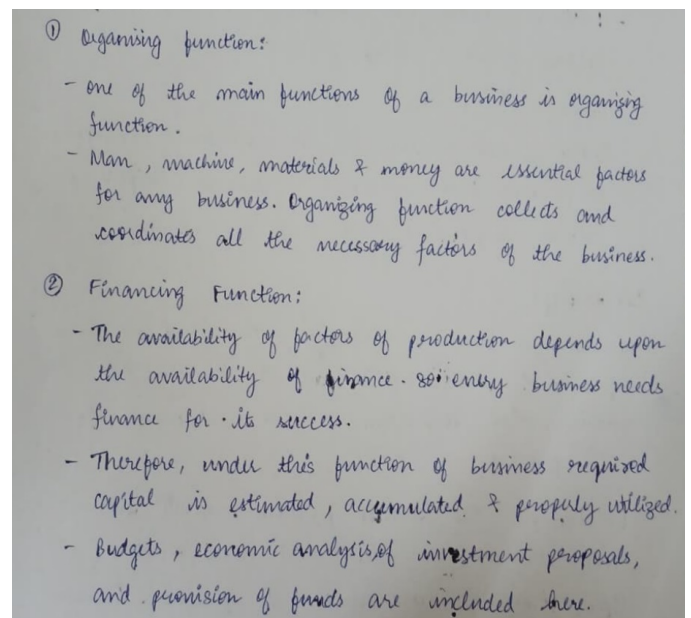 ① Organising function:
- one of the main functions of a business is organizing
function.
- Man, machine, materials & money are essential factors
for any business. Organizing function collects and
coordinates all the necessary factors of the business.
② Financing Function:
- The availability of factors of production depends upon
the availability of finance. so every business needs
finance for its success.
- Therefore, under this function of business required
capital is estimated, accumulated & properly utilized.
- Budgets, economic analysis, of investment proposals,
and provision of funds are included here.